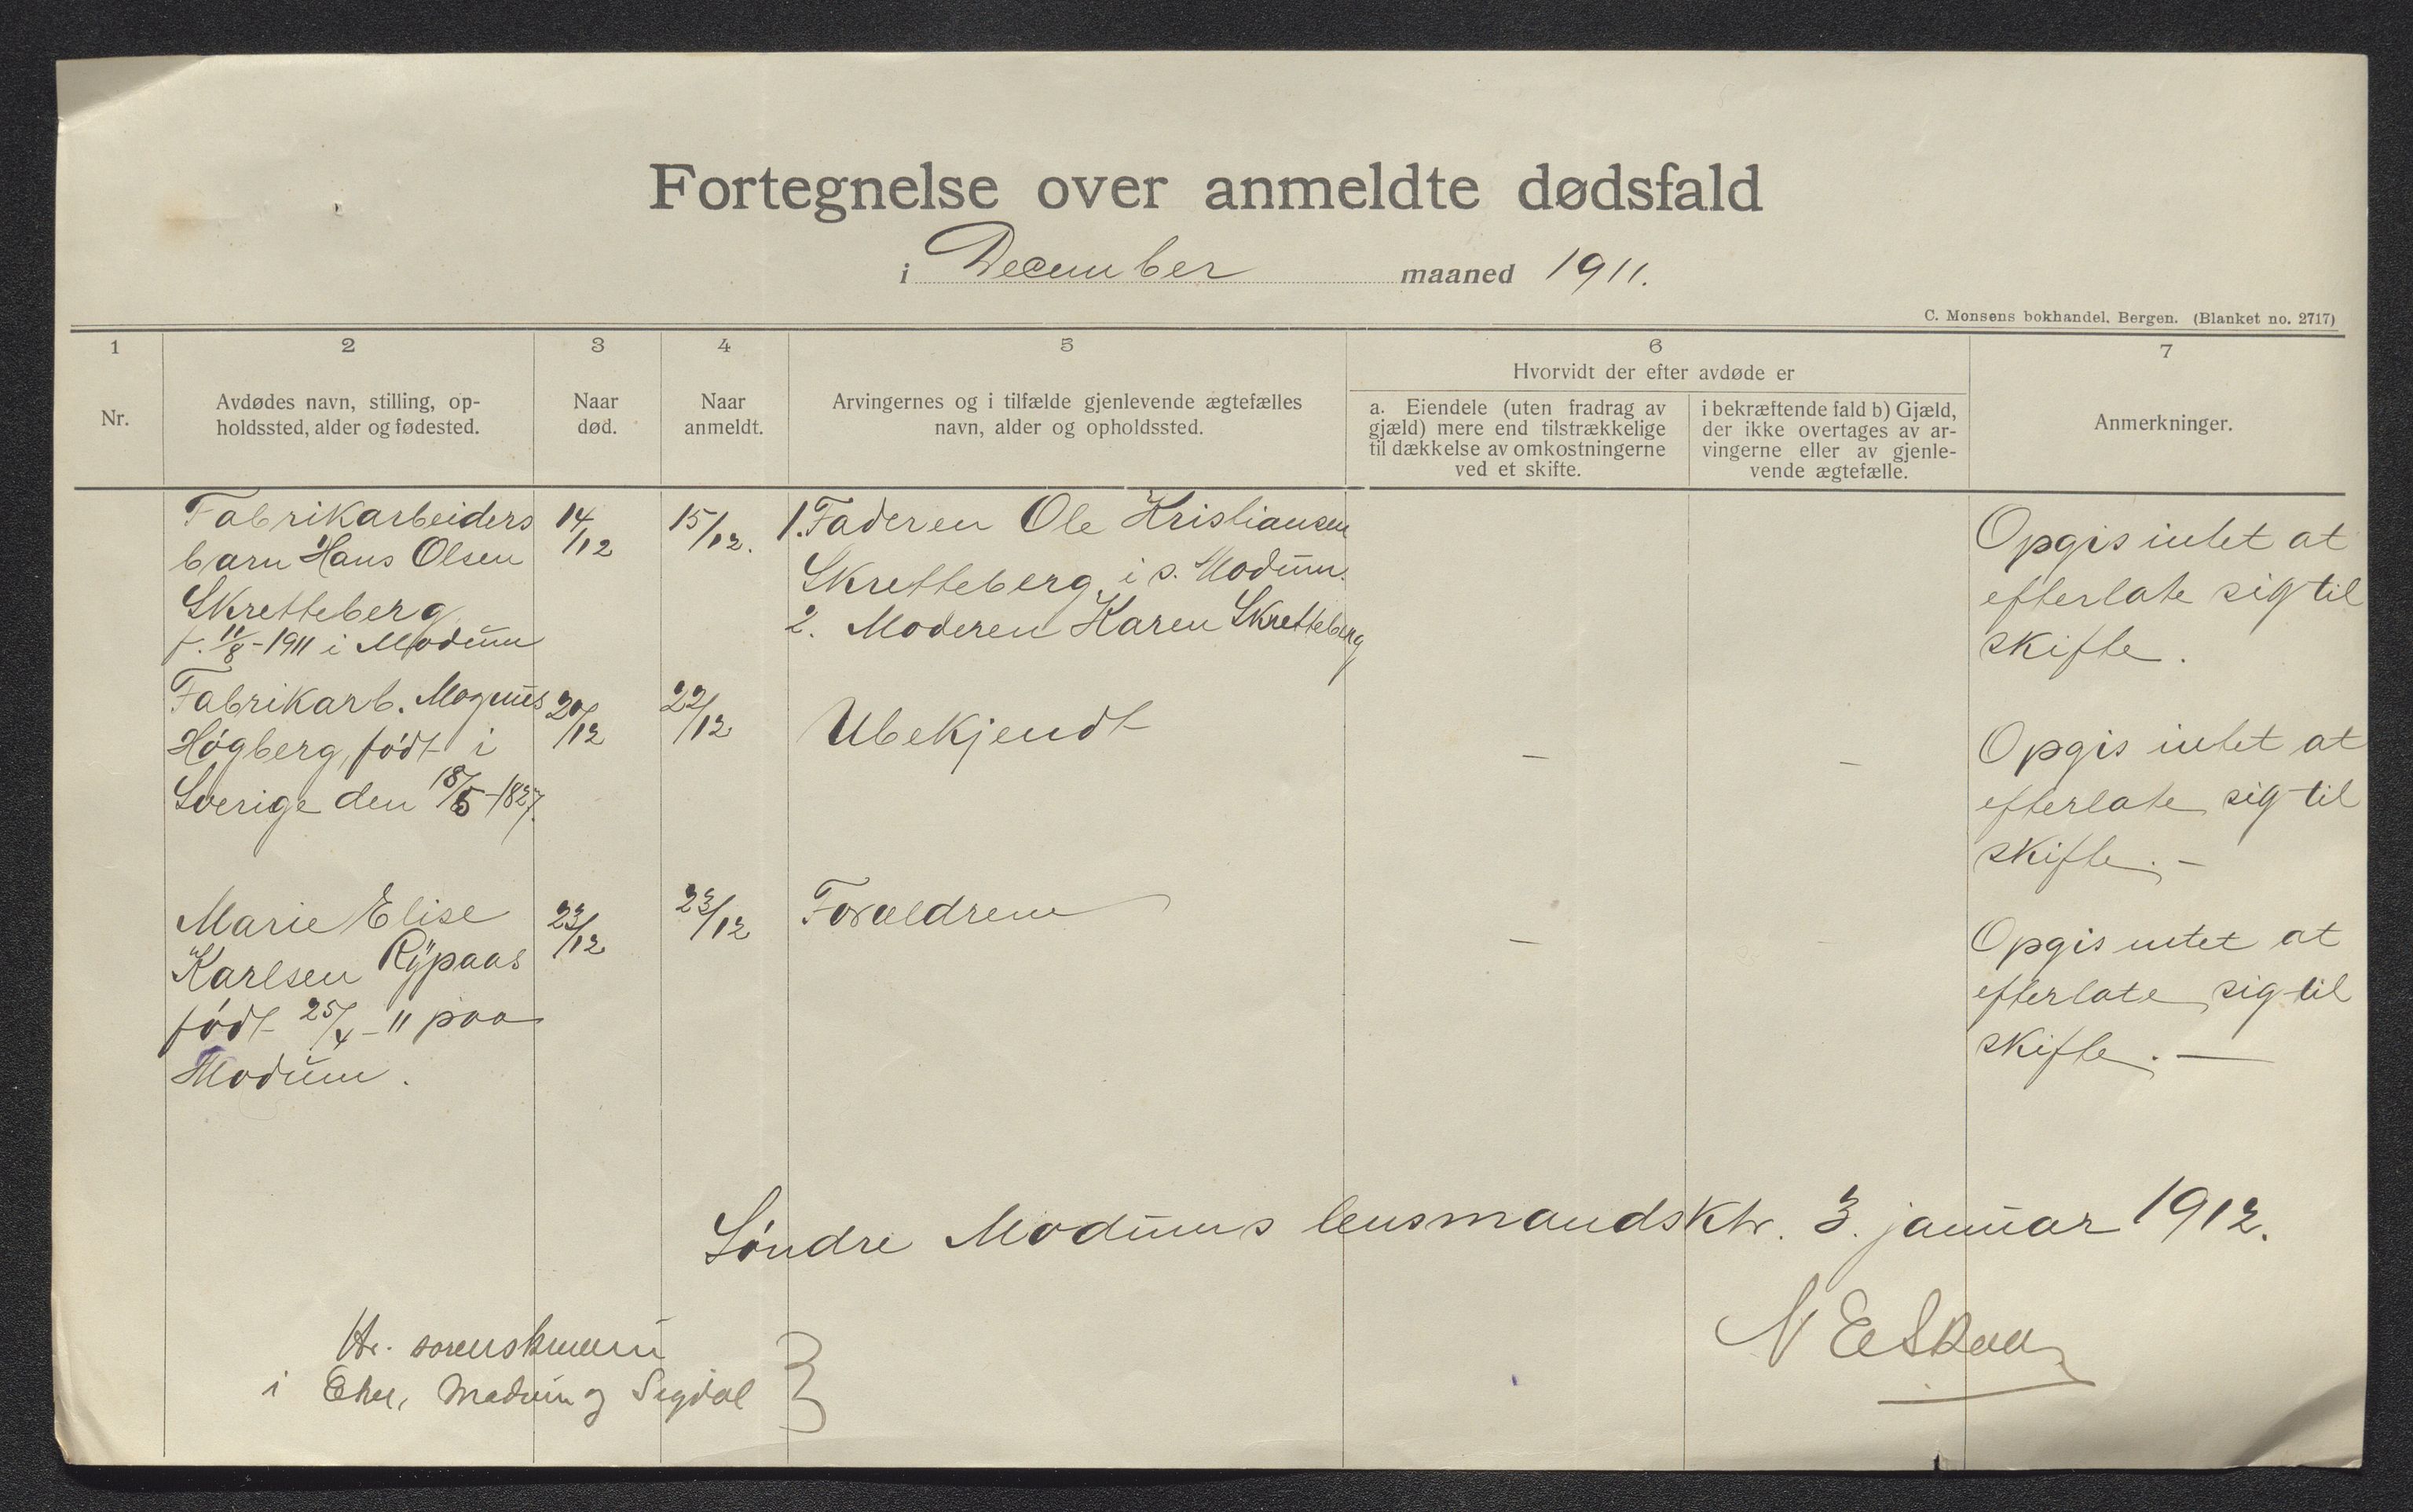 Fortegnelse over anmeldte dødsfald
i December maaned 1911.
C. Monsens bokhandel, Bergen. (Blanket no. 2717)
1
2
3
4
5
6
7
Nr.
Avdødes navn, stilling, op-
holdssted, alder og fødested.
Naar
død.
Naar
anmeldt.
Arvingernes og i tilfælde gjenlevende ægtefælles
navn, alder og opholdssted.
Hvorvidt der efter avdøde er
a. Eiendele (uten fradrag av
gjæld) mere end tilstrækkelige
til dækkelse av omkostningerne
ved et skifte.
i bekræftende fald b) Gjæld,
der ikke overtages av ar-
vingerne eller av gjenle-
vende ægtefælle.
Anmerkninger.
Fabrikarbeiders
barn Hans Olsen
Skretteberg
f. 11/8-1911 i Modum
14/12
15/12.
1. Faderen Ole Kristiansen
Skretteberg, i s. Modum.
2. Moderen Karen Skretteberg
Opgis intet at
efterlate sig til
skifte.
Fabrikarb. Magnus
Høgberg, født i
Sverige den 18/5-1827.
20/12
22/12
Ubekjendt
-
-
Opgis intet at
efterlate sig til
skifte. -
Marie Elise
Karlsen Rypaas
født 25/4-11 paa
Modum.
23/12
23/12
Forældrene
-
-
Opgis intet at
efterlate sig til
skifte. -
Søndre Modums lensmandsktr. 3. januar 1912.
Hr. sorenskriveren
i Eker, Modum og Sigdal